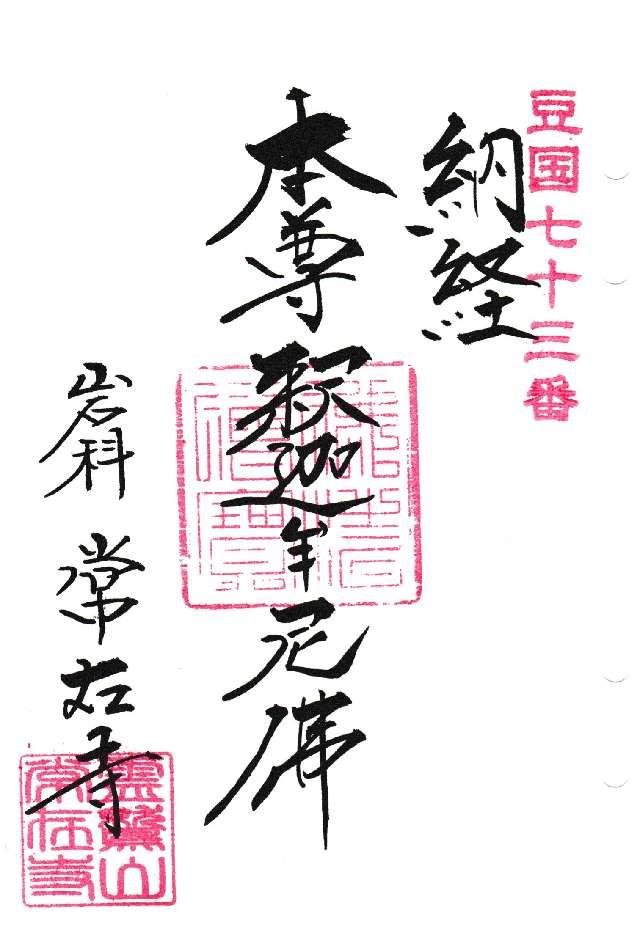 豆国七十三番
納経
本尊釈迦牟尼佛
岩科 常在寺
霊鷲山
常在寺